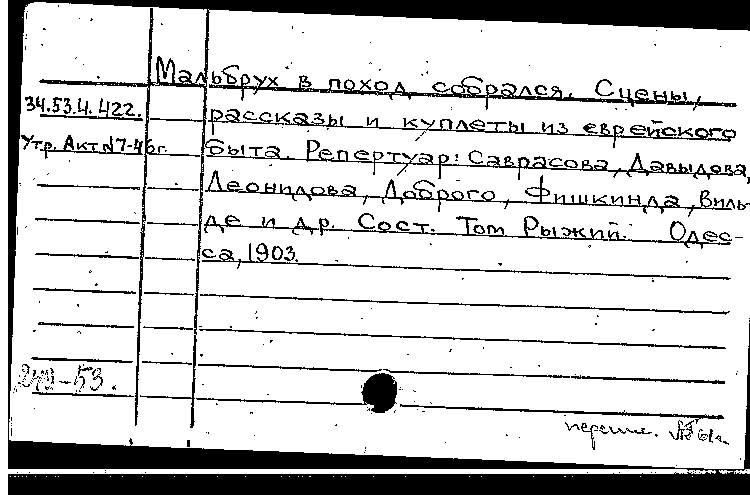 Мальбрух в поход собрался. Сцены,
34.53.4.422. рассказы и куплеты из еврейского
Утр. Акт №7-46г. быта. Репертуар: Саврасова, Давыдова,
Леонидова, Доброго, Фишкинда, Виль-
де и др. Сост. Том Рыжий. Одес-
са, 1903.
-53.